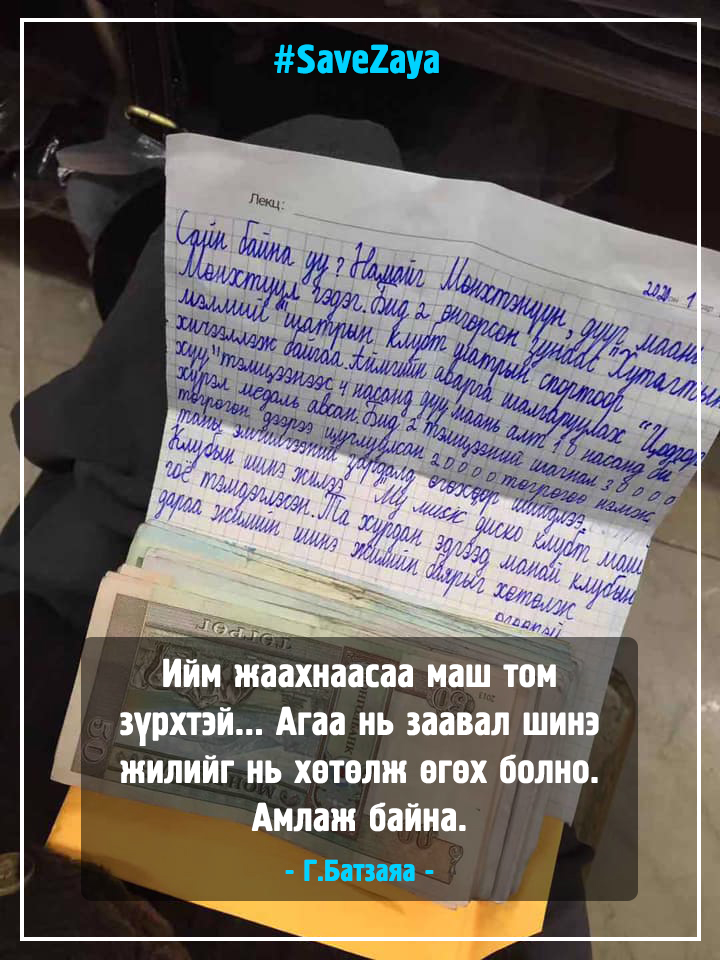 #SaveZaya
Лекц:
2020 он 1 сар
Сайн байна уу? Намайг Мөнхтэнүүн, дүүг маань
Мөнхтуул гэдэг. Бид 2 өнгөрсөн зунаас "Хутагтын
мэлмий" шатрын клубт шатрын спортоор
хичээллэж байгаа. Аймгийн аварга шалгаруулах "Цогдэр
хүү" тэмцээнээс 4 насанд дүү маань алт 10 насанд би
хүрэл медаль авсан. Бид 2 тэмцээний шагнал 30000
төгрөгөн дээрээ цуглуулсан 20000 төгрөгөө нэмж
таны эмчилгээний зардалд өгөхөөр шийдлээ.
Клубын шинэ жилээ "Му миск диско клубт маш
гоё тэмдэглэсэн. Та хурдан эдгээд манай клубын
дараа жилийн шинэ жилийн баярыг хөтөлж
өгөөрэй
ТӨГРӨГ
50
2013
Ийм жаахнаасаа маш том
зүрхтэй... Агаа нь заавал шинэ
жилийг нь хөтөлж өгөх болно.
Амлаж байна.
- Г.Батзаяа -